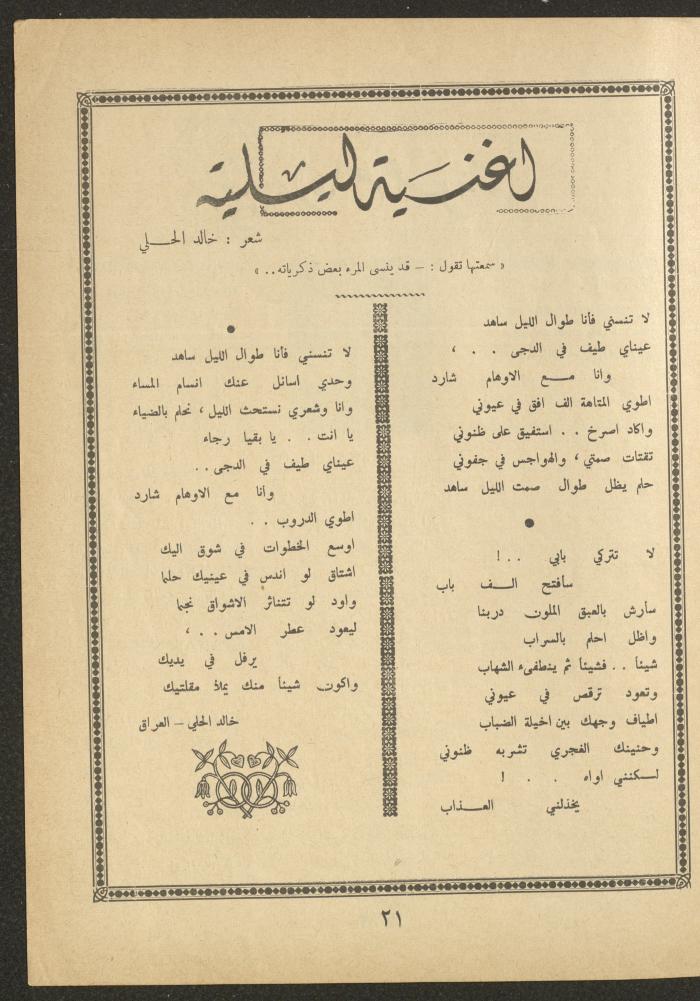 اغنية ليلية
شعر : خالد الحلي
« سمعتها تقول : – قد ينسى المرء بعض ذكرياته . . »
لا تنسني فأنا طوال الليل ساهد
عيناي طيف في الدجى . . ،
وانا مع الاوهام شارد
اطوي المتاهة الف افق في عيوني
واكاد اصرخ . . استفيق على ظنوني
تقتات صمتي ، والهواجس في جفوني
حلم يظل طوال صمت الليل ساهد
●
لا تتركي بابي . . !
سأفتح الف باب
سأرش بالعبق الملون دربنا
واظل احلم بالسراب
شيئاً . . فشيئاً ثم ينطفىء الشهاب
وتعود ترقص في عيوني
اطياف وجهك بين اخيلة الضباب
وحنينك الفجري تشربه ظنوني
لكنني اواه . . !
يخذلني العذاب
●
لا تنسني فأنا طوال الليل ساهد
وحدي اسائل عنك انسام المساء
وانا وشعري نستحث الليل ، نحلم بالضياء
يا انت . . يا بقيا رجاء
عيناي طيف في الدجى . .
وانا مع الاوهام شارد
اطوي الدروب . .
اوسع الخطوات في شوق اليك
اشتاق لو اندس في عينيك حلما
واود لو تتناثر الاشواق نجما
ليعود عطر الامس . . ،
يرفل في يديك
واكون شيئاً منك يملأ مقلتيك
خالد الحلي – العراق
٢١